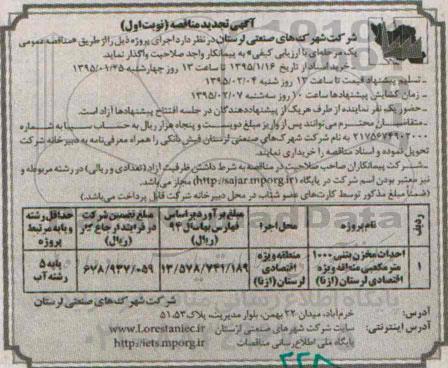 آگهی تجدید مناقصه (نوبت اول)
شرکت شهرک های صنعتی لرستان در نظر دارد اجرای پروژه ذیل را از طریق «مناقصه عمومی
یک مرحله‌ای با ارزیابی کیفی» به پیمانکار واجد صلاحیت واگذار نماید.
خرید اسناد از تاریخ ۱۳۹۵/۱/۱۶ تا ساعت ۱۳ روز چهارشنبه ۱۳۹۵/۰۱/۲۵
ـ تسلیم پیشنهاد قیمت تا ساعت ۱۳ روز شنبه ۱۳۹۵/۰۲/۰۴
ـ زمان گشایش پیشنهادها ساعت ۱۰ روز سه‌شنبه ۱۳۹۵/۰۲/۰۷
ـ حضور یک نفر نماینده از طرف هریک از پیشنهاددهندگان در جلسه افتتاح پیشنهادها آزاد است.
ـ متقاضیان محترم می‌توانند پس از واریز مبلغ دویست و پنجاه هزار ریال به حساب سیبا به شماره
۲۱۷۵۶۷۴۹۰۲۰۰۰ به نام شرکت شهرک‌های صنعتی لرستان فیش بانکی را همراه معرفی‌نامه به دبیرخانه شرکت
تحویل نموده و اسناد مناقصه را خریداری نمایند.
ـ شرکت پیمانکاران صاحب صلاحیت در مناقصه به شرط داشتن ظرفیت آزاد (تعدادی و ریالی) در رشته مربوطه و
نیز معتبر بودن اسم شرکت در پایگاه (http://sajar.mporg.ir) مجاز می‌باشد.
(ضمناً مبلغ مذکور توسط کارت‌های عضو شتاب در محل دبیرخانه شرکت قابل پرداخت می‌باشد.)
ردیف نام پروژه محل اجرا مبلغ برآورد براساس فهارس بهای سال ۹۴ (ریال) مبلغ تضمین شرکت در فرآیند ارجاع کار (ریال) حداقل رشته و پایه مرتبط پروژه
۱ احداث مخزن بتنی ۱۰۰۰ متر مکعبی منطقه ویژه اقتصادی لرستان (ازنا) منطقه ویژه اقتصادی لرستان (ازنا) ۱۳/۵۷۸/۷۴۱/۱۸۹ ۶۷۸/۹۳۷/۰۵۹ پایه ۵ رشته آب
شرکت شهرک های صنعتی لرستان
آدرس: خرم‌آباد، میدان ۲۲ بهمن، بلوار مدیریت، پلاک ۵۱.۵۳
آدرس اینترنتی: سایت شرکت شهرهای صنعتی لرستان www.Lorestaniec.ir
پایگاه ملی اطلاع رسانی مناقصات http://iets.mporg.ir